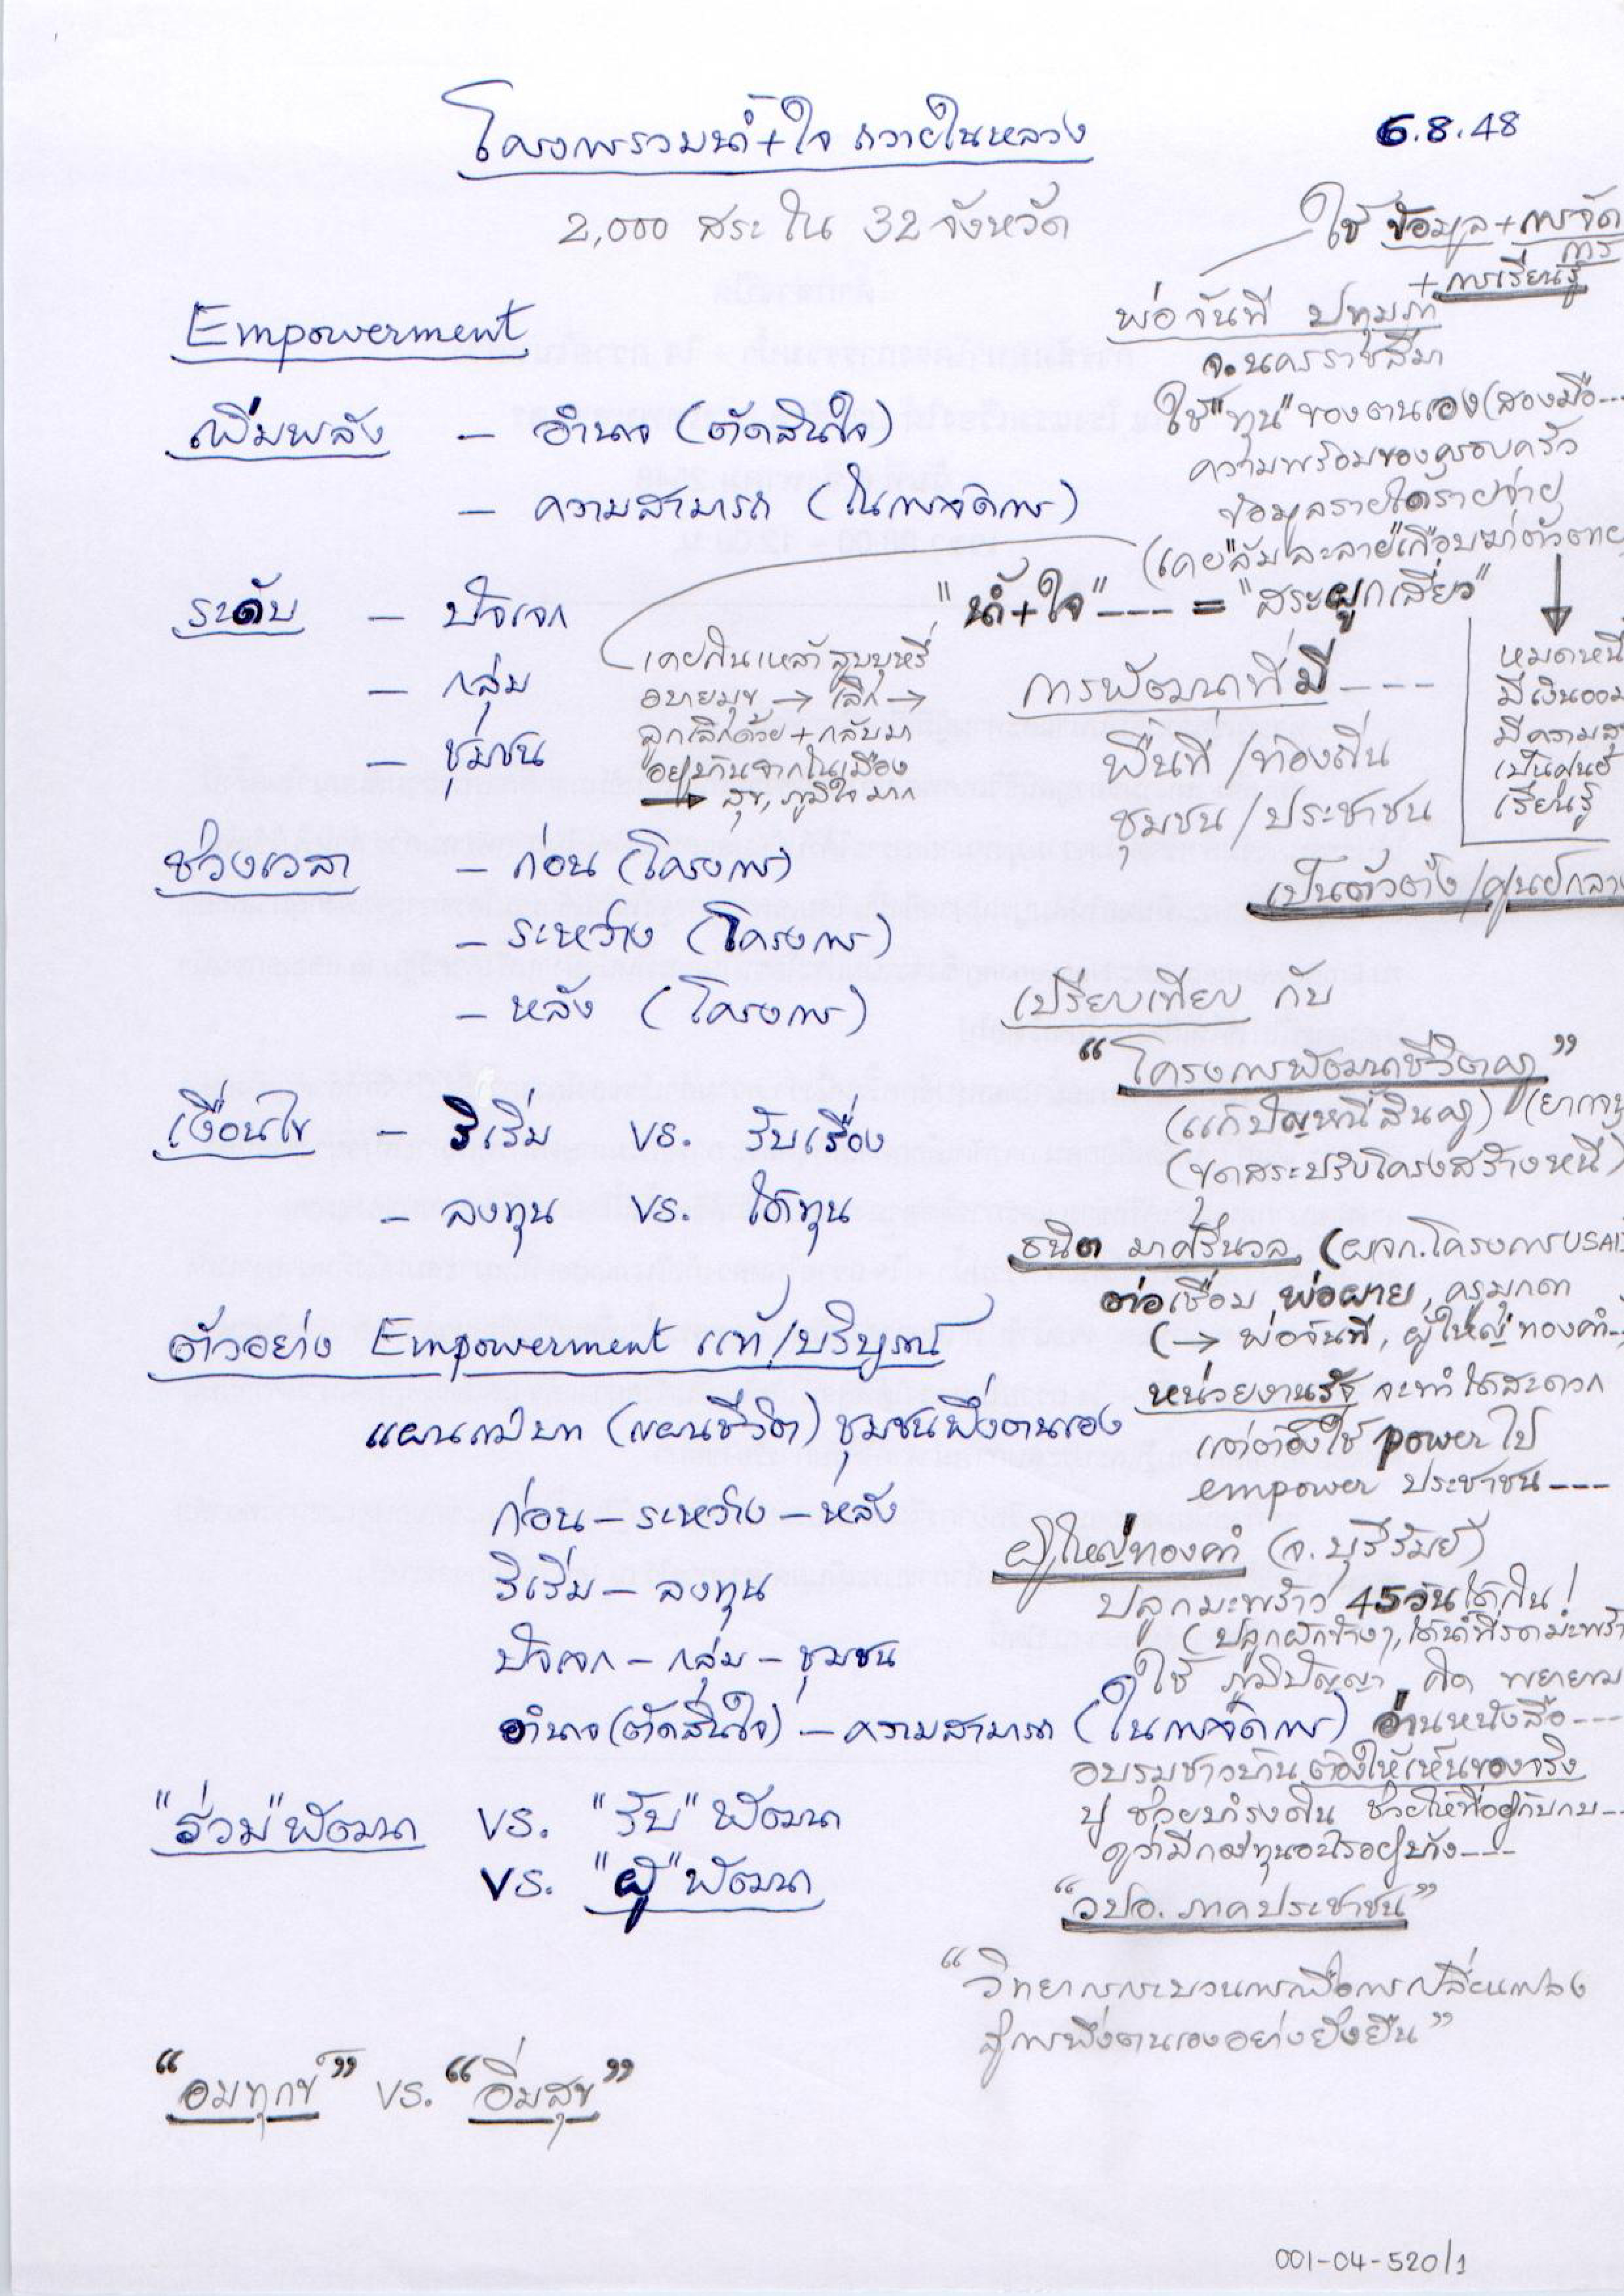 โครงการรวมน้ำ+ใจ ถวายในหลวง
6.8.48
2,000 สระ ใน 32 จังหวัด
Empowerment
เพิ่มพลัง – อำนาจ (ตัดสินใจ)
– ความสามารถ (ในการจัดการ)
ระดับ – ปัจเจก
– กลุ่ม
– ชุมชน
เคยกินเหล้า สูบบุหรี่
อบายมุข → เลิก →
ลูกเลิกด้วย + กลับมา
อยู่บ้านจากในเมือง
→ สุข, ภูมิใจมาก
ช่วงเวลา – ก่อน (โครงการ)
– ระหว่าง (โครงการ)
– หลัง (โครงการ)
เงื่อนไข – ริเริ่ม vs. รับเรื่อง
– ลงทุน vs. ได้ทุน
ตัวอย่าง Empowerment แท้/บริบูรณ์
แผนแม่บท (แผนชีวิต) ชุมชนพึ่งตนเอง
ก่อน – ระหว่าง – หลัง
ริเริ่ม – ลงทุน
ปัจเจก – กลุ่ม – ชุมชน
อำนาจ (ตัดสินใจ) – ความสามารถ (ในการจัดการ)
"ร่วม" พัฒนา vs. "รับ" พัฒนา
vs. "ผู้" พัฒนา
"อมทุกข์" vs. "อิ่มสุข"
ใช้ ข้อมูล + การจัด
การ
+ การเรียนรู้
พ่อจันที ปทุมภา
จ.นครราชสีมา
ใช้ "ทุน" ของตนเอง (สองมือ---
ความพร้อมของครอบครัว
ข้อมูลรายได้รายจ่าย
(เคย "ล้มละลาย" เกือบฆ่าตัวตาย
"น้ำ+ใจ" --- = "สระผูกเสี่ยว"
หมดหนี้
มีเงินออม
มีความสุข
เป็นศูนย์
เรียนรู้
การพัฒนาที่มี ---
พื้นที่/ท้องถิ่น
ชุมชน/ประชาชน
เป็นตัวตั้ง/ศูนย์กลาง
เปรียบเทียบ กับ
"โครงการพัฒนาชีวิตครู"
(แก้ปัญหนี้สินครู) (ยากจน
(ขุดสระปรับโครงสร้างหนี้)
ธนิต มาศรีนวล (ผจก.โครงการ USAID
ต่อเชื่อม พ่อผาย, ครูมุกดา
(→ พ่อจันที, ผู้ใหญ่ทองคำ--
หน่วยงานรัฐ จะทำได้สะดวก
แต่ต้องใช้ power ไป
empower ประชาชน ---
ผู้ใหญ่ทองคำ (จ.บุรีรัมย์)
ปลูกมะพร้าว 45 วันได้กิน!
(ปลูกผักข้างๆ, ได้น้ำที่รดมะพร้าว
ใช้ ภูมิปัญญา คิด พยายาม
อ่านหนังสือ ---
อบรมชาวบ้าน ต้องให้เห็นของจริง
ปู ช่วยบำรุงดิน ช่วยให้ที่อยู่กับกบ---
ดูว่ามีกองทุนอะไรอยู่บ้าง---
"วปอ. ภาคประชาชน"
"วิทยาการกระบวนการเพื่อการเปลี่ยนแปลง
สู่การพึ่งตนเองอย่างยั่งยืน"
001-04-520/1